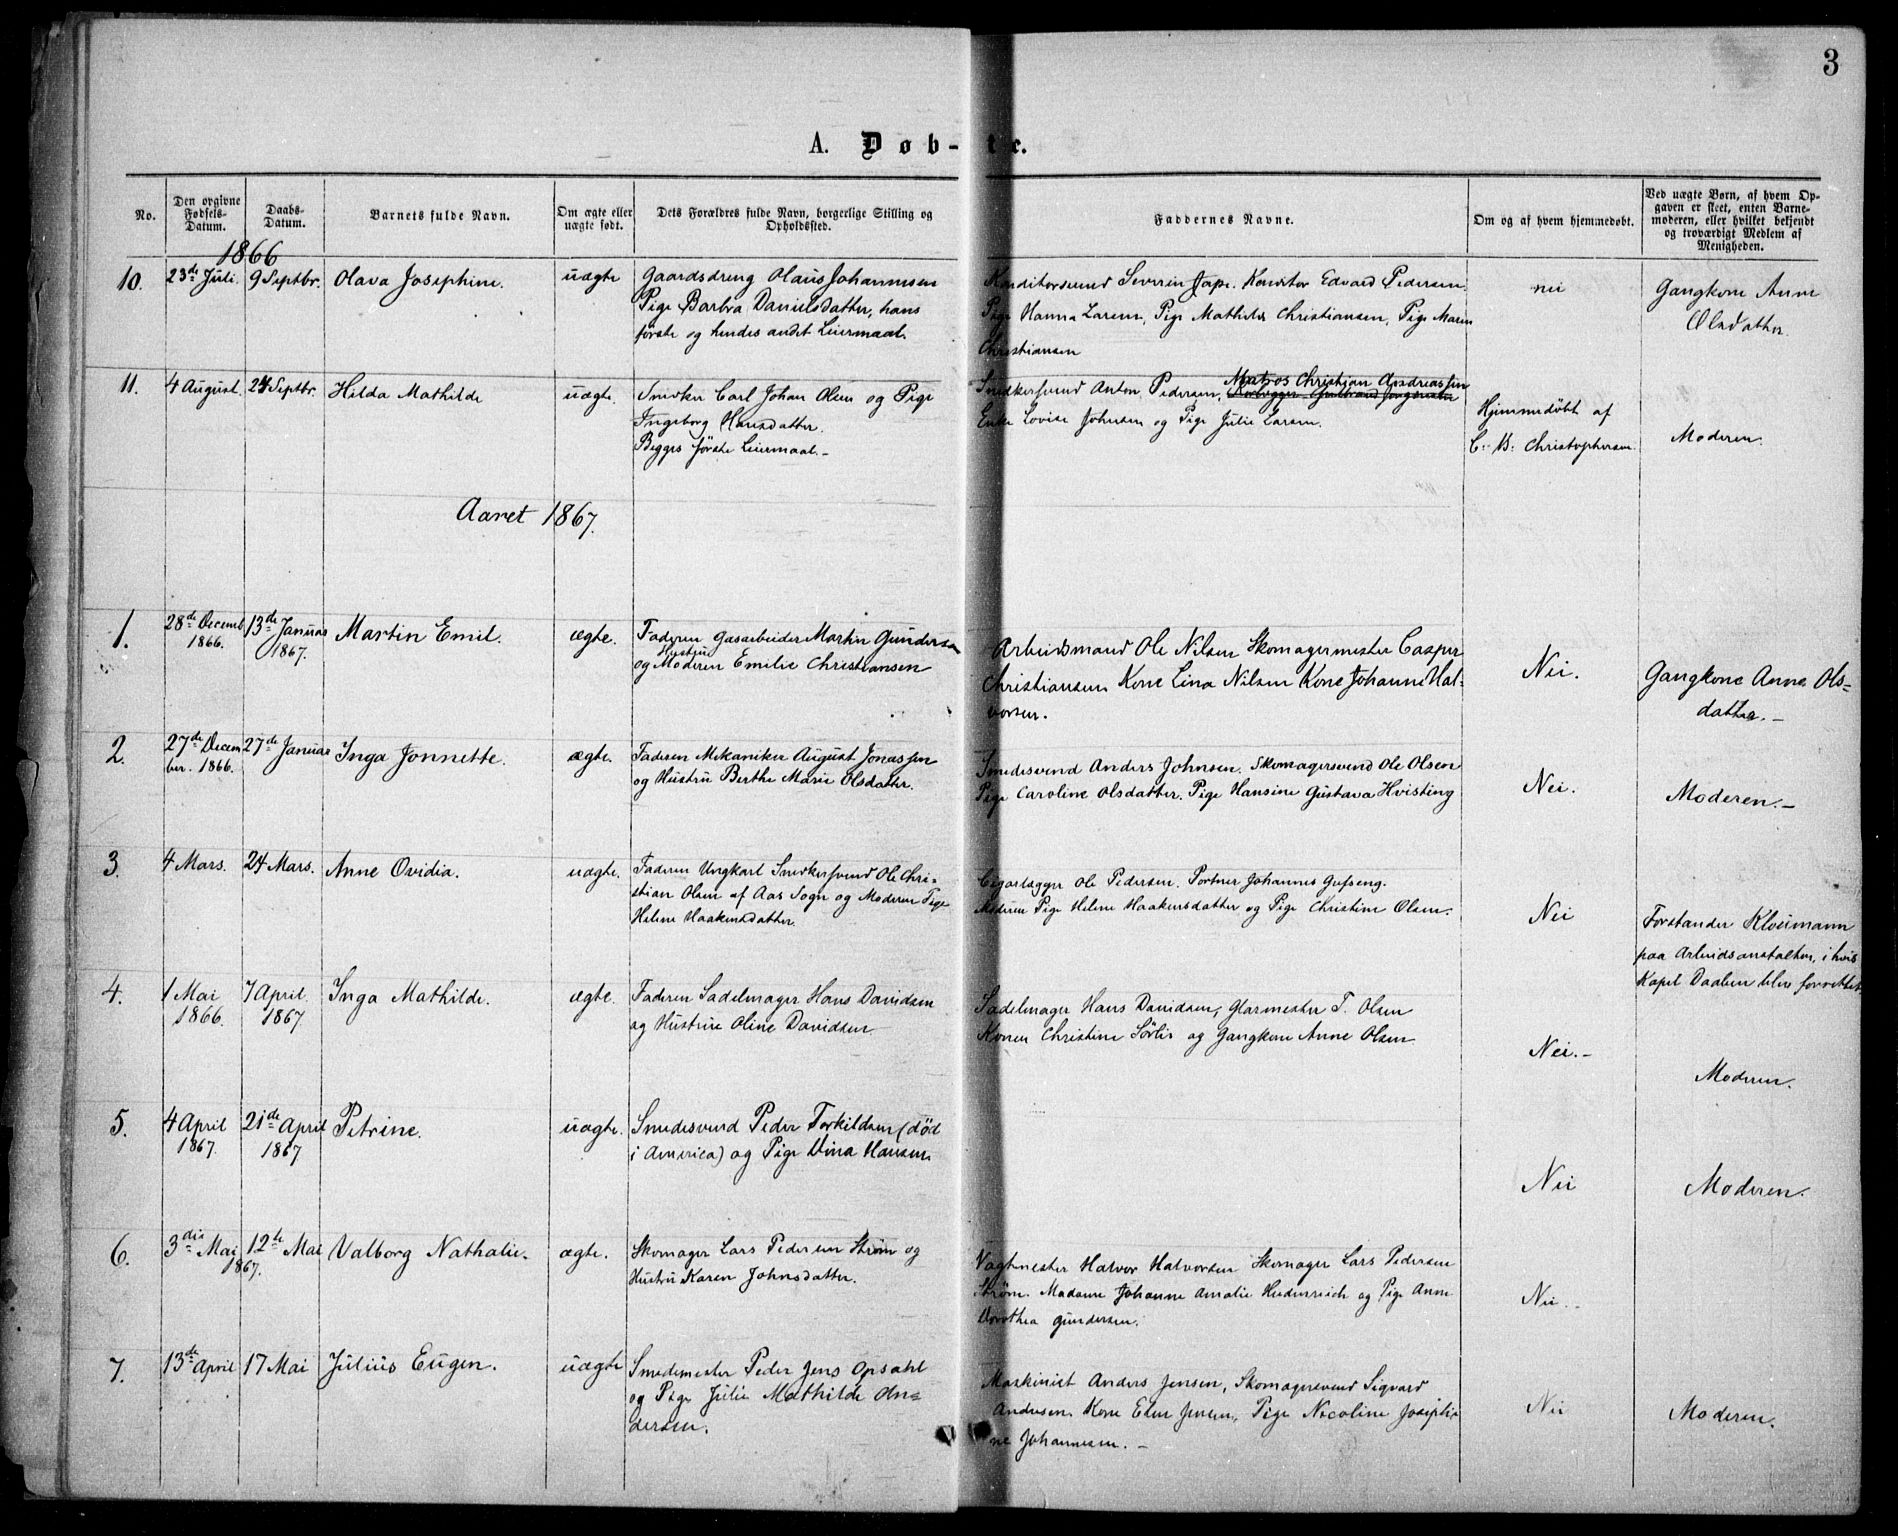 3
A. Døb-te.
No.
Den opgivne Fødsels-Datum.
Daabs-Datum.
Barnets fulde Navn.
Om ægte eller uægte født.
Dets Forældres fulde Navn, borgerlige Stilling og Opholdssted.
Faddernes Navne.
Om og af hvem hjemmedøbt.
Ved uægte Børn, af hvem Opgaven er skeet, enten Barnemoderen, eller hvilket bekjendt og troværdigt Medlem af Menigheden.
1866
10. 23de Juli. 9 Septbr. Olava Josephine. uægte
Gaardsdreng Olaus Johannesen
Pige Barbra Danielsdatter, hans
første og hendes andet Leiermaal.
Konditorsvend Severin Jape. Konditor Edvard Pedersen
Pige Hanna Larsen, Pige Mathilde Christiansen, Pige Maren
Christiansen
nei
Gangkone Anne
Olsdatter.
11. 4 August. 24 Septbr. Hilda Mathilde uægte.
Snedker Carl Johan Olsen og Pige
Ingeborg Hansdatter.
Begges første Leiermaal.-
Matros Christian Andreassen
Snedkersvend Anton Pedersen,
Enke Lovise Johnsen og Pige Julie Larsen.
Hjemmedøbt af
C. B. Christophersen.
Moderen.
Aaret 1867.
1. 28de Decemb. 1866. 13de Januar 1867. Martin Emil. ægte.
Faderen Gasarbeider Martin Gundersen
og Hustru Moderen Emilie Christiansen
Arbeidsmand Ole Nilsen Skomagermester Casper
Christiansen Kone Lina Nilsen Kone Johanne Hal-
vorsen.
Nei.
Gangkone Anne Ols-
datter.-
2. 27de Decem ber. 1866. 27de Januar Inga Jonnette. ægte.
Faderen Mekaniker August Jonassen
og Hustru Berthe Marie Olsdatter.
Smedesvend Anders Johnsen. Skomagersvend Ole Olsen
Pige Caroline Olsdatter. Pige Hansine Gustava Hvisting
Nei.
Moderen.-
3. 4 Mars. 24 Mars. Anne Ovidia. uægte.
Faderen Ungkarl Snedkersvend Ole Chri-
stian Olsen af Aas Sogn og Moderen Pige
Helene Haakensdatter.
Cigarlægger Ole Pedersen. Portner Johannes
Moderen Pige Helene Haakensdatter og Pige Christine Olsen.
Nei
Forstander Kloumann
paa Arbeidsanstalten, i hvis
Kapel Daaben blev forrettet.
4. 1 Mai 1866. 7 April 1867 Inga Mathilde. ægte.
Faderen Sadelmager Hans Davidsen
og Hustrue Oline Davidsen
Sadelmager Hans Davidsen, Glarmester T. Olsen
Konen Christine Sørlis og Gangkone Anne Olsen
Nei.-
Moderen.
5. 4 April 1867. 21de April 1867 Petrine. uægte.
Smedesvend Peder Torkildsen (død
i America) og Pige Dina Hansen
Nei
Moderen.
6. 3die Mai 12te Mai 1867. Valborg Nathalie. ægte.
Skomager Lars Pedersen Strøm og
Hustru Karen Johnsdatter.
Vagtmester Halvor Halvorsen Skomager Lars Pedersen
Strøm. Madame Johanne Amalie Hedenreich og Pige Anne
Dorothea Gundersen.
Nei.-
7. 13de April 17 Mai Julius Eugen. uægte
Smedemester Peder Jens Opsahl
og Pige Julie Mathilde An-
dersen.
Maskinist Anders Jensen, Skomagersvend Sigvard
Andresen Kone Elen Jensen, Pige Nicoline Josephi-
ne Johannesen.-
Nei
Moderen.